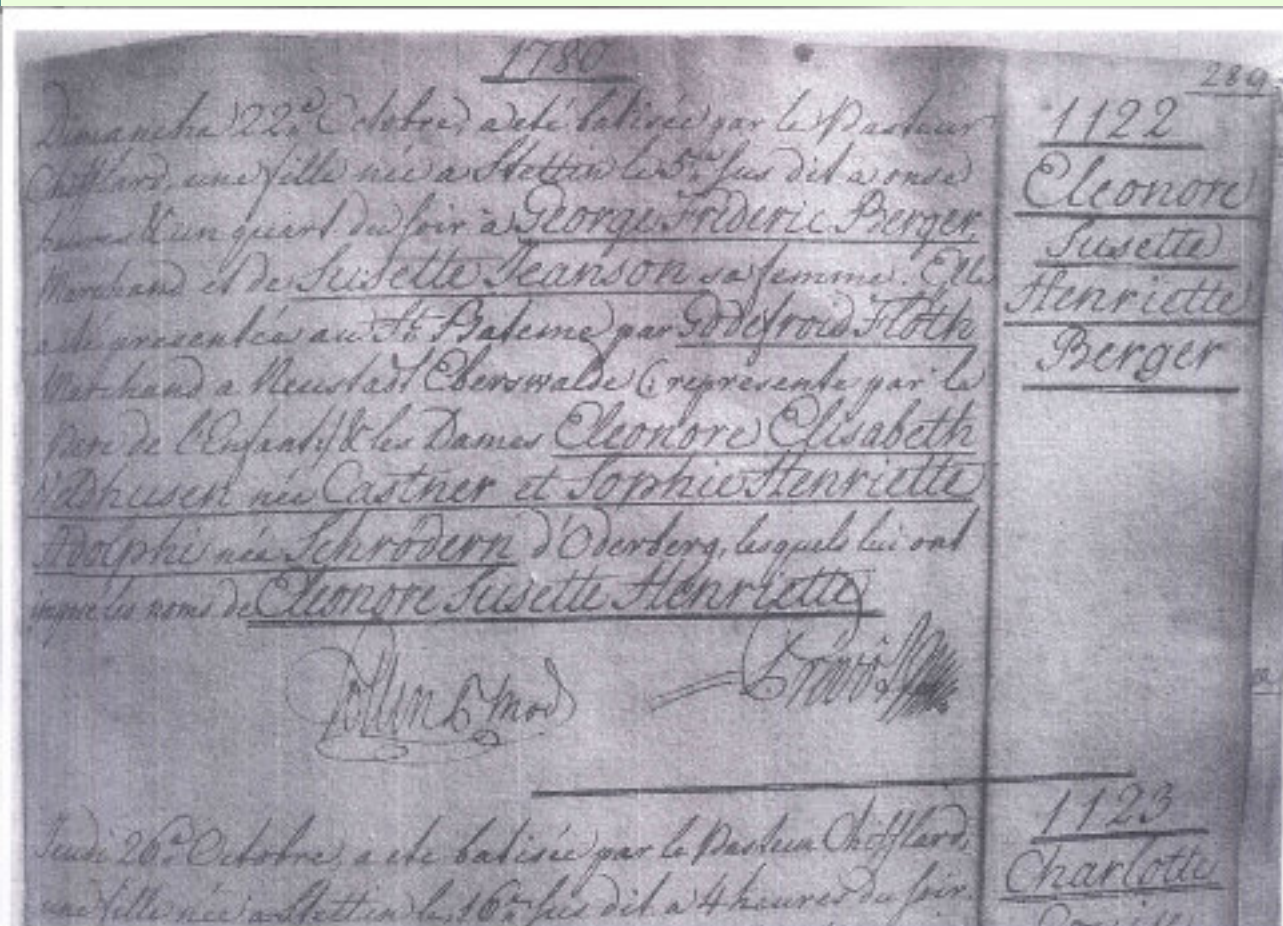 1780
289
Dimanche 22.e Octobre, a eté batisée par le Pasteur
Chifflard, une fille née a Stettin le 5.e sus dit a onse
heures & un quart du soir à George Frideric Berger
Marchand et de Susette Jeanson sa femme. Elle
a été presentée au St. Bateme par Godefroid Floth
Marchand a Neustadt Eberswalde (represente par le
Pere de l'Enfant) & les Dames Eleonore Elisabeth
Velthusen née Castner et Sophie Henriette
Adolphi née Schrödern d'Oderberg, lesquels lui ont
imposé les noms de Eleonore Susette Henriette
1122
Eleonore
Susette
Henriette
Berger
Jeudi 26.e Octobre, a eté batisée par le Pasteur Chifflard,
une fille née a Stettin le 16.e sus dit a 4 heures du soir
1123
Charlotte
Louise